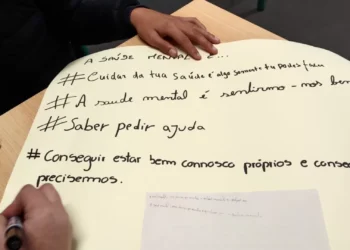 A SAÚDE MENTAL É...
# Cuidar da tua saúde é algo somente tu podes fazer
# A saude mental é sentirmo-nos bem
# Saber pedir ajuda
# Conseguir estar bem connosco próprios e conse
precisermos.